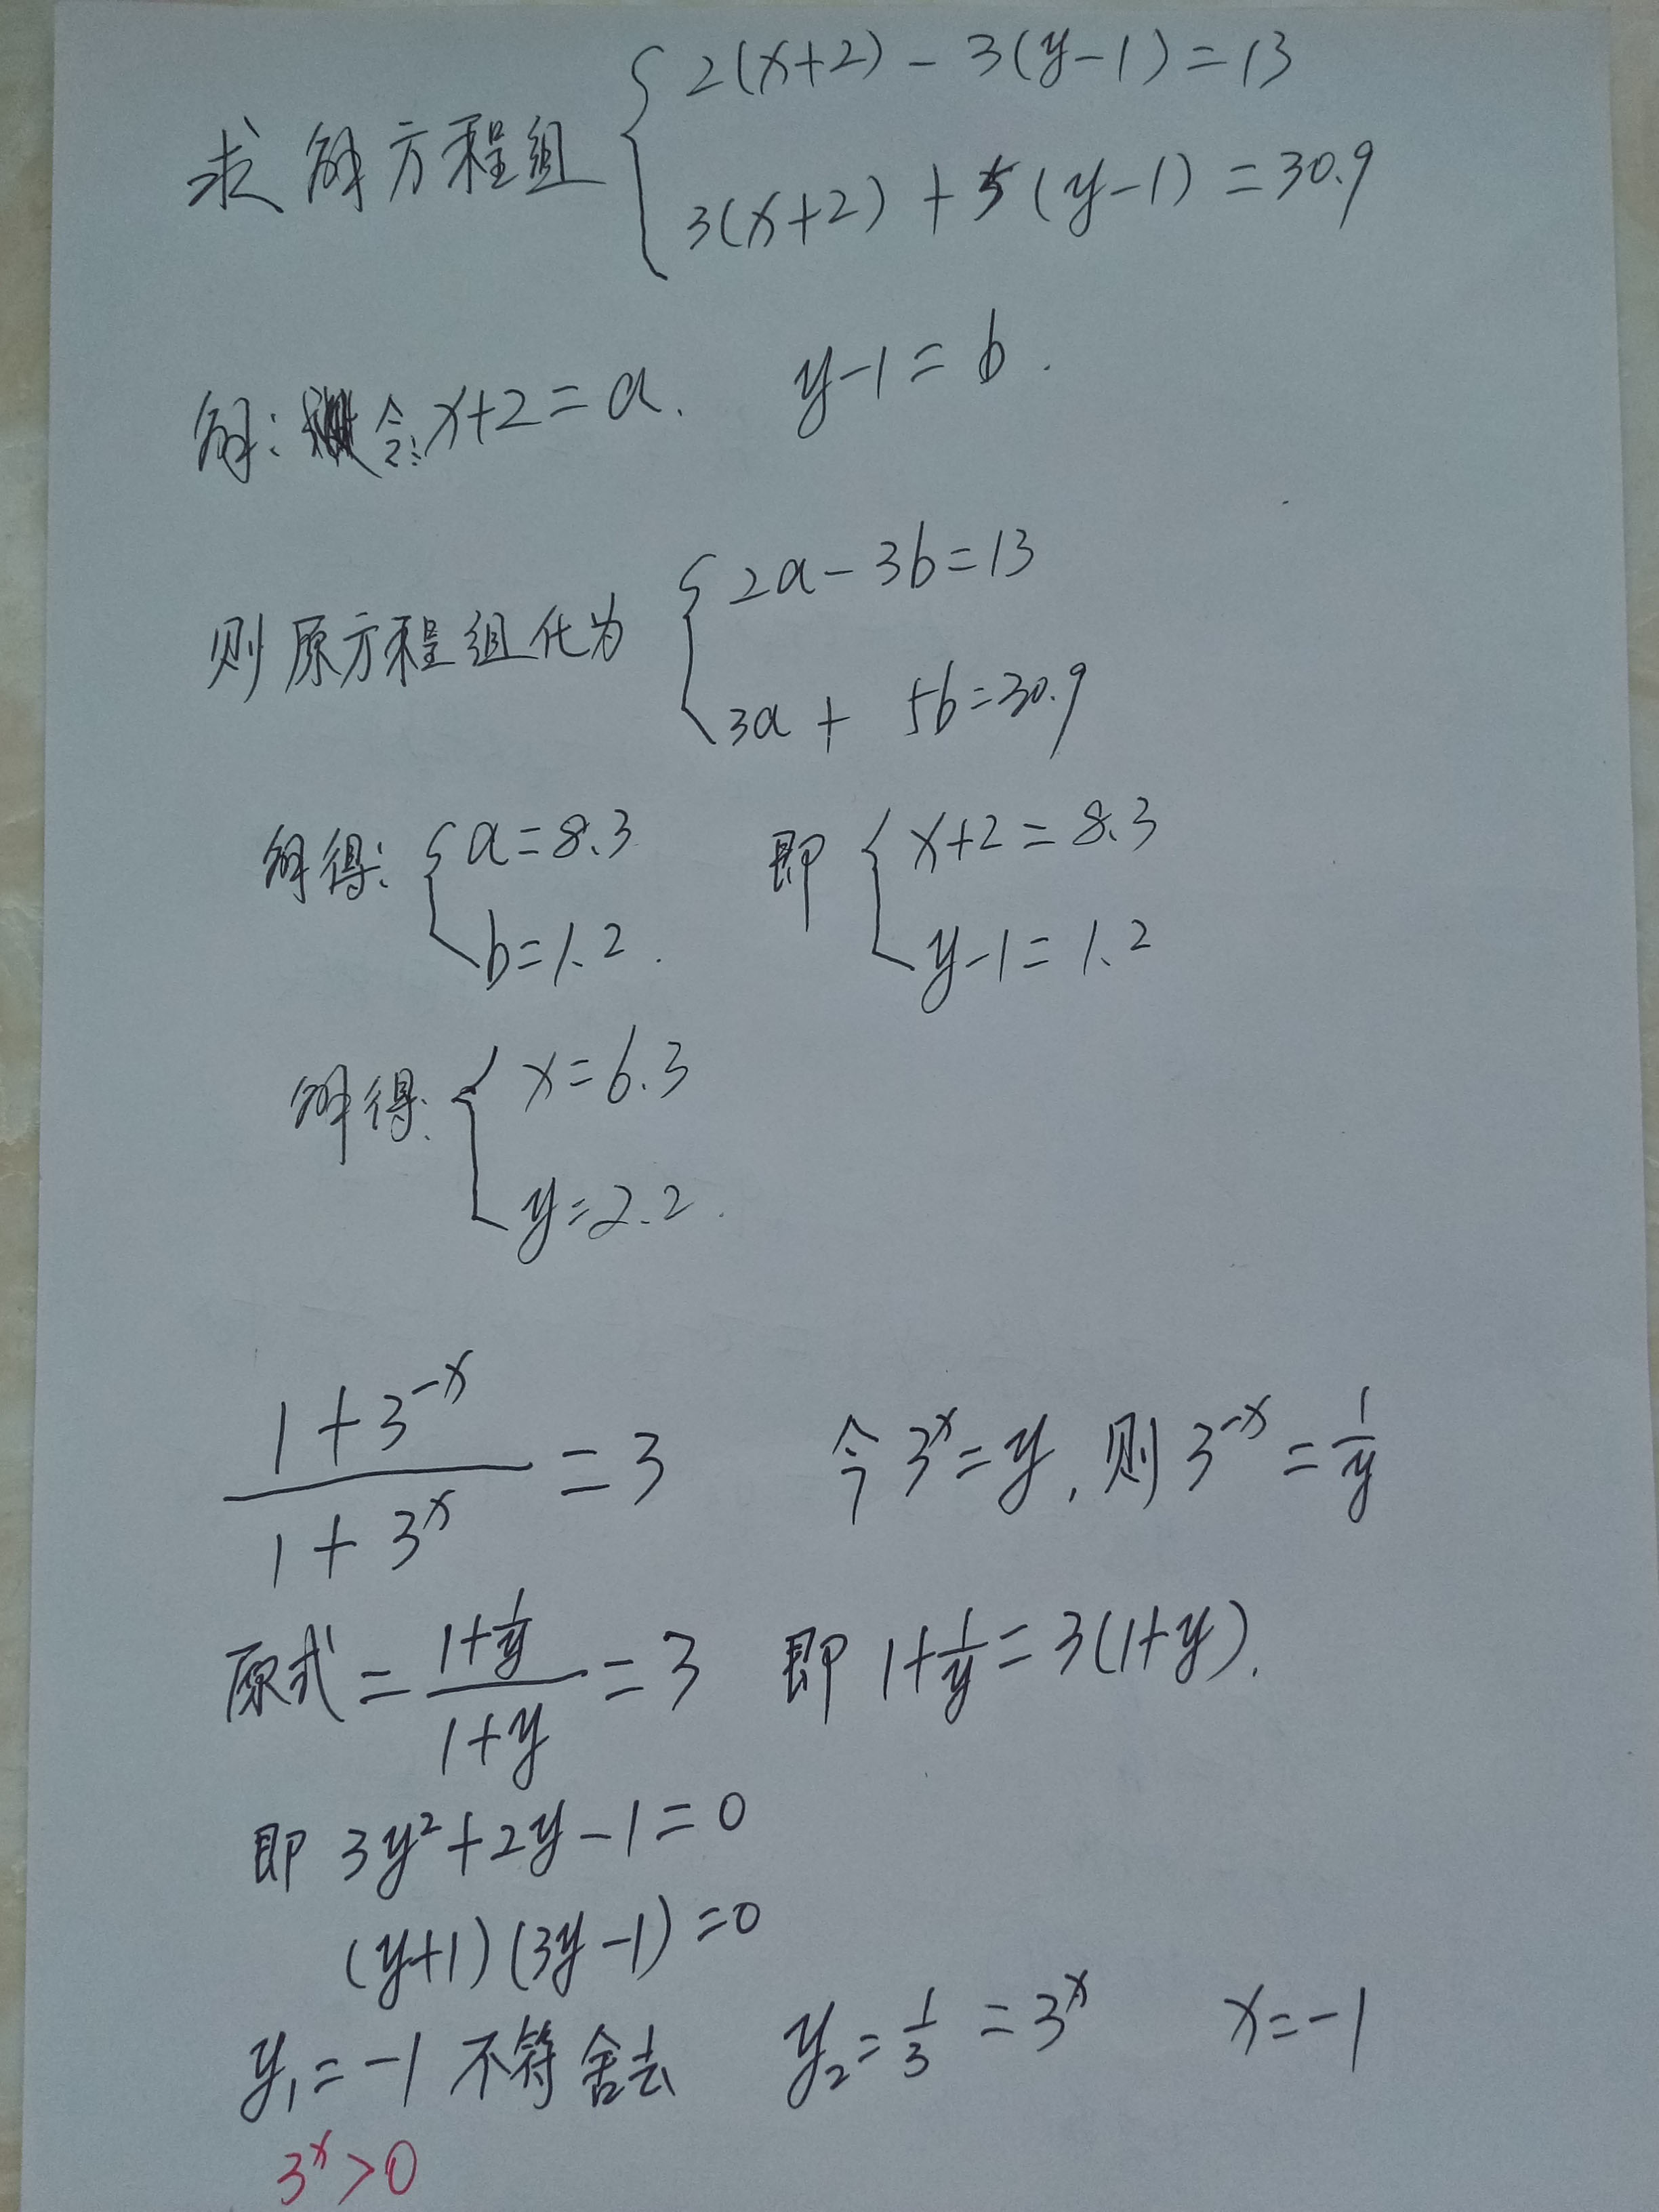 求解方程组 { 2(x+2) - 3(y-1) = 13
3(x+2) + 5(y-1) = 30.9
解: 令: x+2 = a. y-1 = b.
则原方程组化为 { 2a - 3b = 13
3a + 5b = 30.9
解得: { a = 8.3 即 { x+2 = 8.3
b = 1.2. y-1 = 1.2
解得: { x = 6.3
y = 2.2.
(1+3^{-x})/(1+3^x) = 3 令 3^x = y, 则 3^{-x} = 1/y
原式 = (1+1/y)/(1+y) = 3 即 1+1/y = 3(1+y).
即 3y² + 2y - 1 = 0
(y+1)(3y-1) = 0
y₁ = -1 不符 舍去 y₂ = 1/3 = 3^x x = -1
3^x > 0